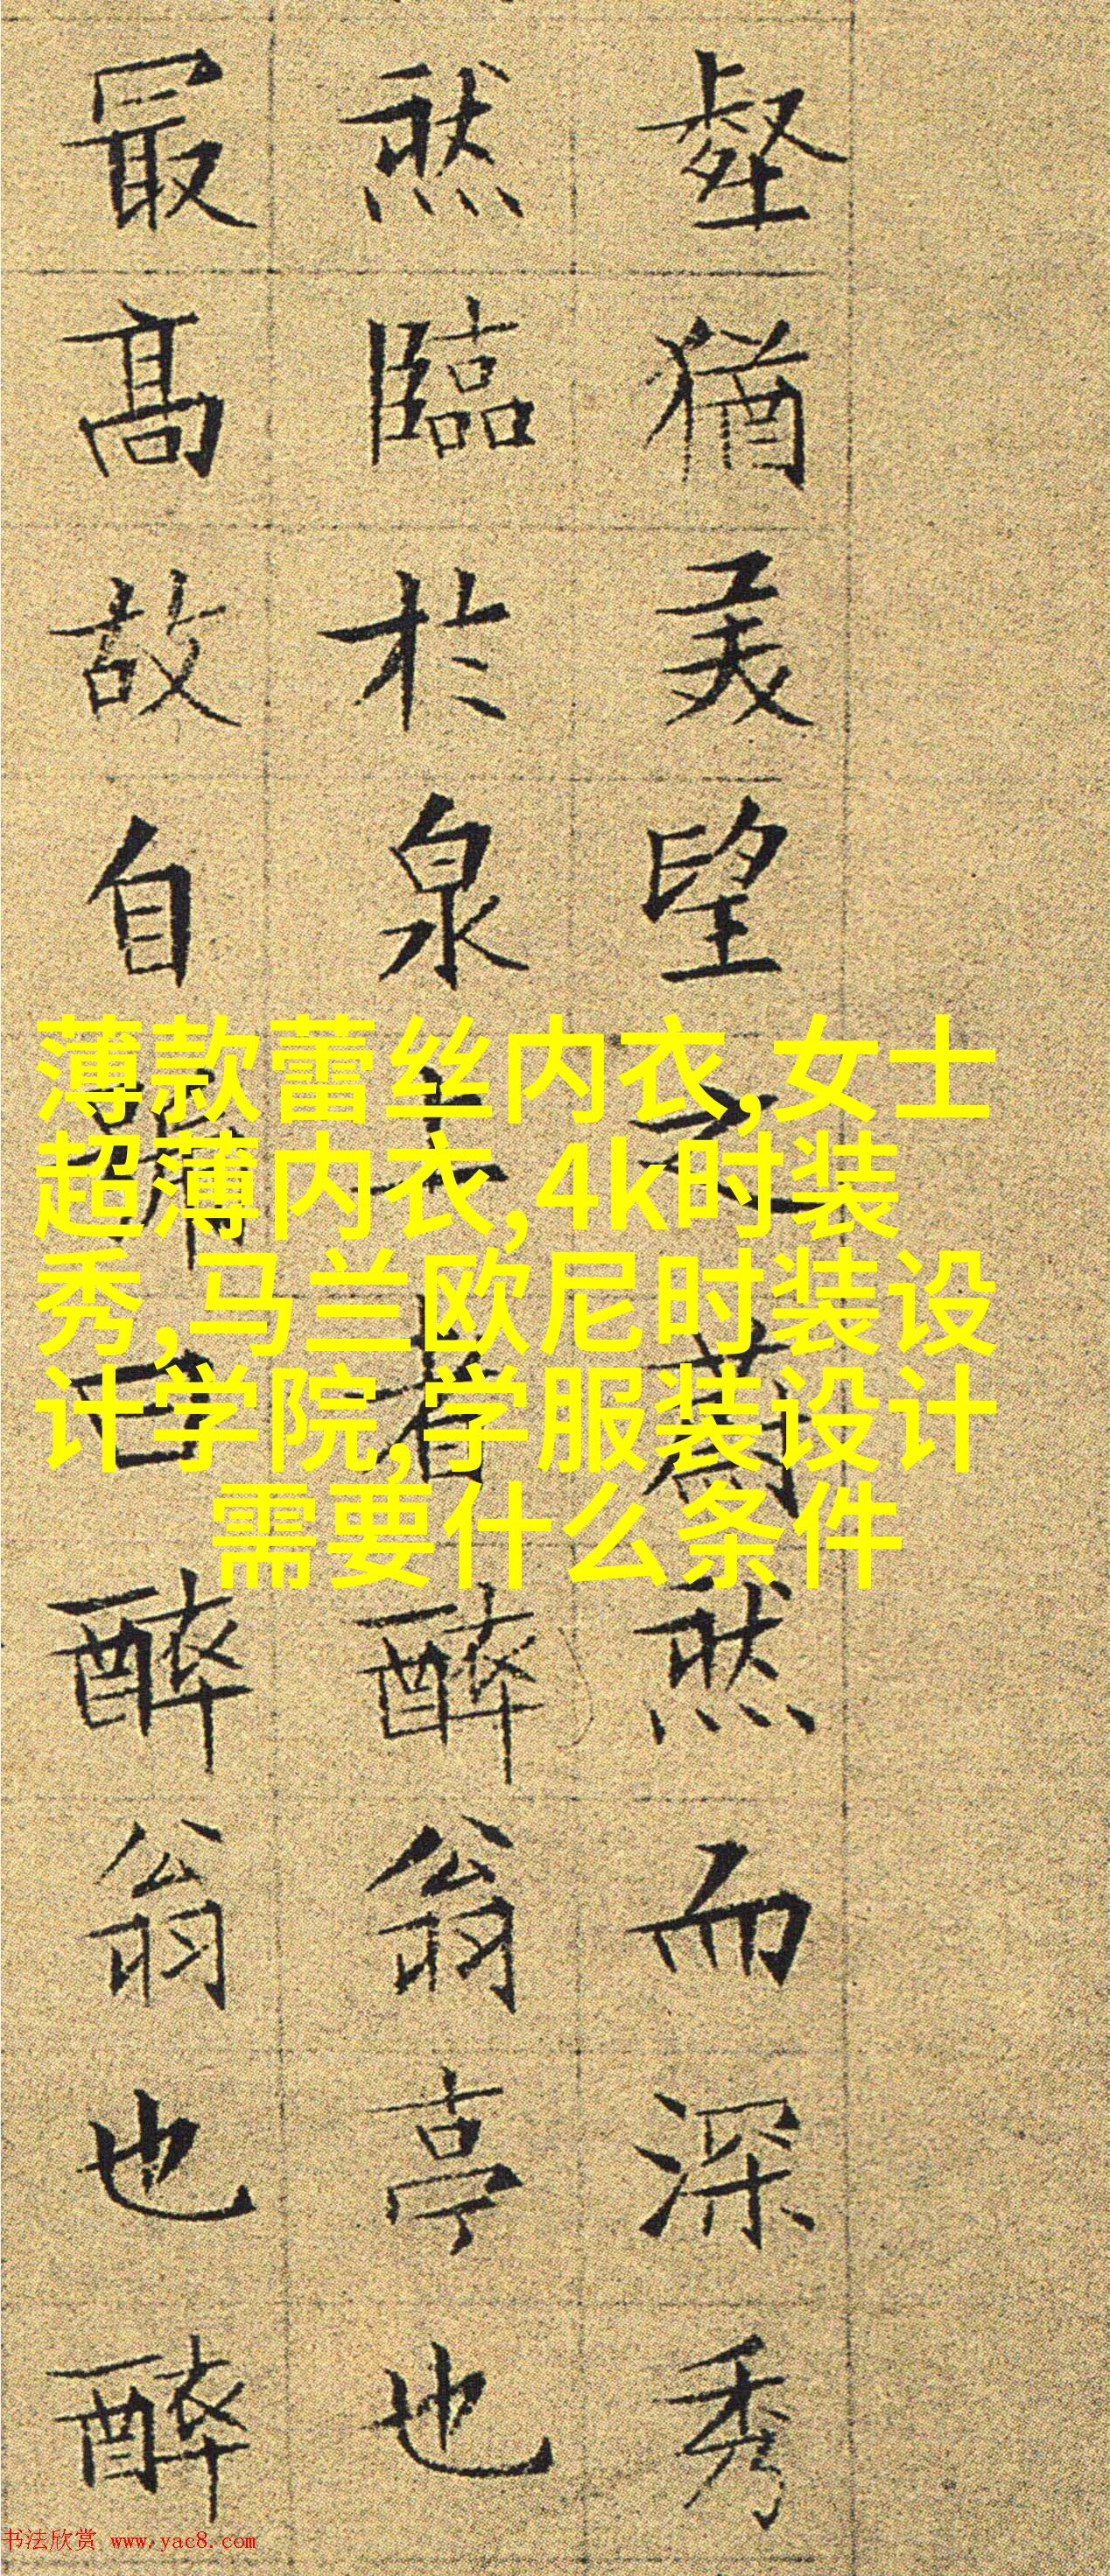 壑猶美望之蔚然而深秀
然臨於泉上者醉翁亭也
最高故自號曰醉翁也醉
薄款蕾丝内衣,女士
超薄内衣,4k时装
秀,马兰欧尼时装设
计学院,学服装设计
需要什么条件
书法欣赏 www.yac8.com